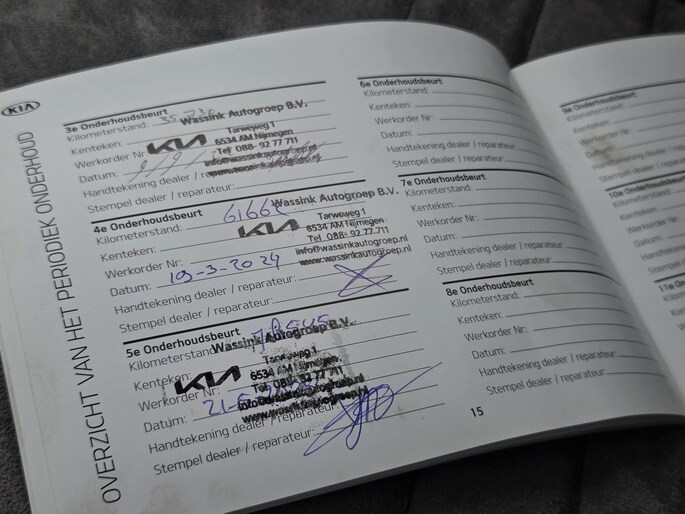 KIA
OVERZICHT VAN HET PERIODIEK ONDERHOUD
3e Onderhoudsbeurt
Kilometerstand: 35 730
Wassink Autogroep B.V.
Kenteken:
Tarweweg 1
KIA
6534 AM Nijmegen
Werkorder Nr
Tel 088- 92 77 711
Datum:
Handtekening dealer / reparateur:
Stempel dealer / reparateur:
4e Onderhoudsbeurt
Wassink Autogroep B.V.
Kilometerstand:
Tarweweg 1
KIA
6534 AM Nijmegen
Kenteken:
Tel 088- 92 77 711
Werkorder Nr:
info@wassinkautogroep.nl
www.wassinkautogroep.nl
Datum: 19-3-2024
Handtekening dealer / reparateur:
Stempel dealer / reparateur:
5e Onderhoudsbeurt
Wassink Autogroep B.V.
Kilometerstand
Tarweweg 1
Kenteken:
KIA
6534 AM Nijmegen
Tel 088- 92 77 711
Werkorder Nr:
info@wassinkautogroep.nl
www.wassinkautogroep.nl
Datum:
Handtekening dealer / reparateur:
Stempel dealer / reparateur:
6e Onderhoudsbeurt
Kilometerstand:
Kenteken:
Werkorder Nr:
Datum:
Handtekening dealer / reparateur:
Stempel dealer / reparateur:
7e Onderhoudsbeurt
Kilometerstand:
Kenteken:
Werkorder Nr:
Datum:
Handtekening dealer / reparateur:
Stempel dealer / reparateur:
8e Onderhoudsbeurt
Kilometerstand:
Kenteken:
Werkorder Nr:
Datum:
Handtekening dealer / reparateur:
Stempel dealer / reparateur:
15
9e Onderhoudsbeurt
Kilometerstand:
Kenteken:
Werkorder Nr:
Datum:
Handtekening
Stempel dealer
10e Onderhoudsb
Kilometerstand
Kenteken:
Werkorder Nr:
Datum:
Handtekening
Stempel deal
11e Onder
Kilomete